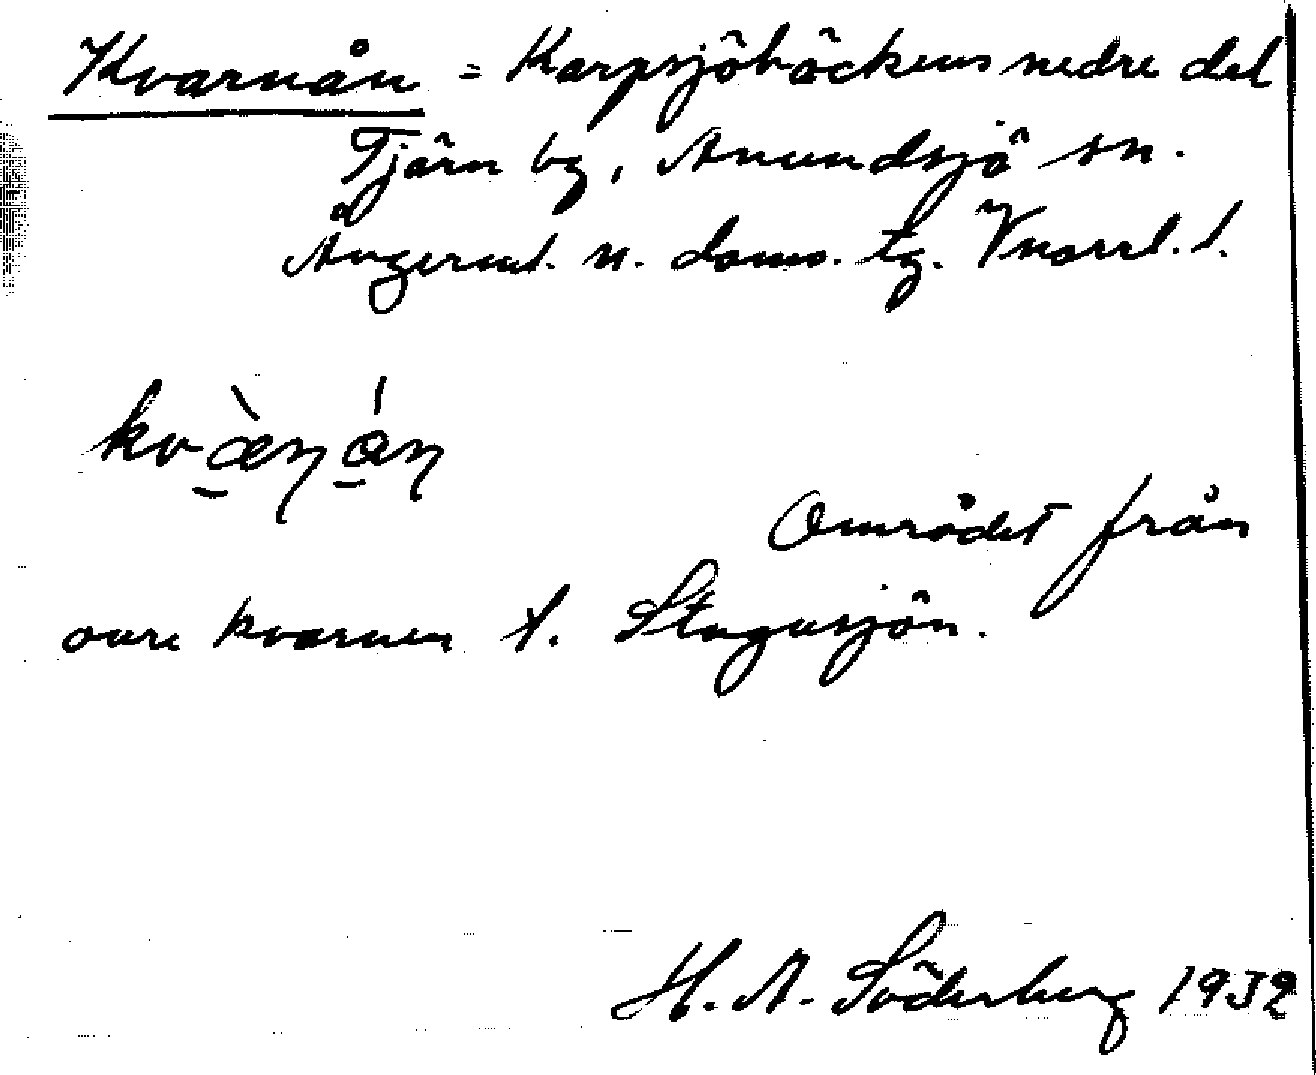 Kvarnån = Karpsjöbäckens nedre del
Tjärn by, Anundsjö sn.
Ångerml. n. doms. tg. Vnorrl. l.
kvæ̀ṇán
Området från
övre kvarnen t. Stugusjön.
H. A. Söderberg 1932